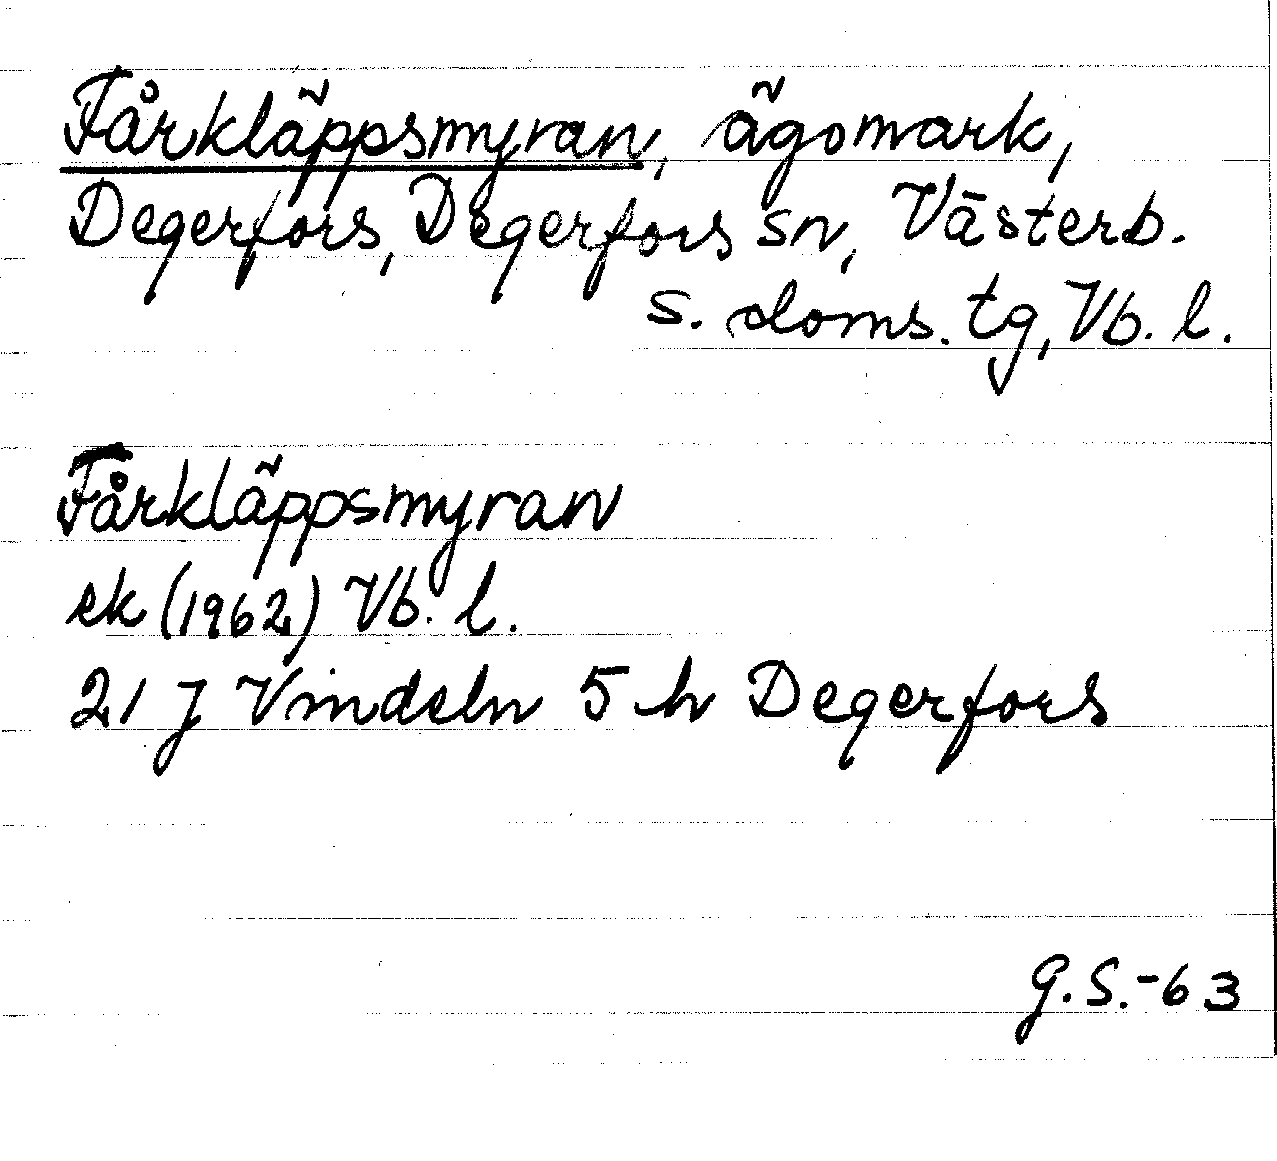 Fårkläppsmyran, ägomark,
Degerfors, Degerfors sn, Västerb.
s. doms. tg, Vb. l.
Fårkläppsmyran
ek (1962) Vb. l.
21 J Vindeln 5 h Degerfors
G.S.-63